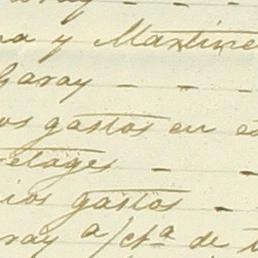 a y Martine
Garay - - -
os gastos en e
elages - -
ios gastos -
aray a/cta de t